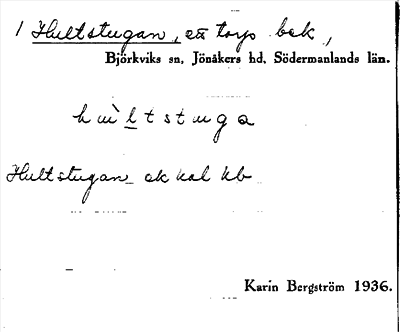 1 Hultstugan, ett torp bek,
Björkviks sn, Jönåkers hd, Södermanlands län.
hùltstuga
Hultstugan ek kal kb
Karin Bergström 1936.